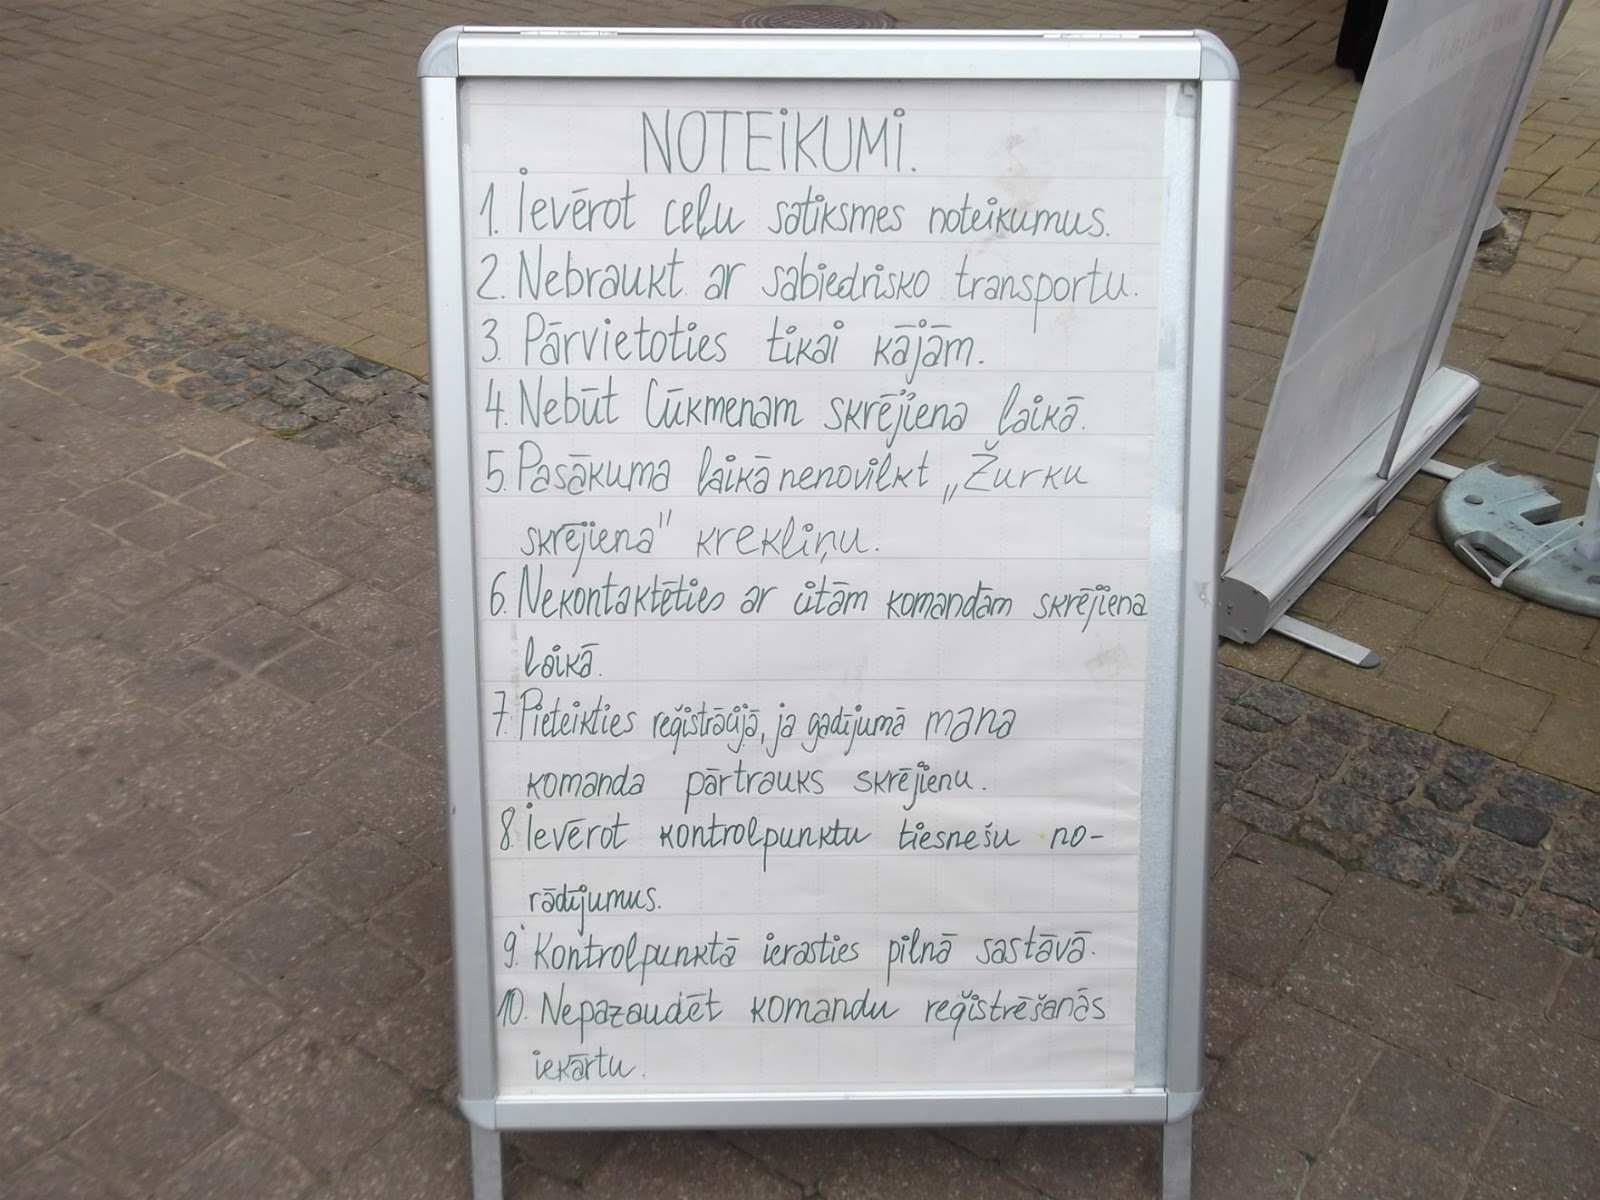 NOTEIKUMI.
1. Ievērot ceļu satiksmes noteikumus.
2. Nebraukt ar sabiedrisko transportu.
3. Pārvietoties tikai kājām.
4. Nebūt Cūkmenam skrējiena laikā.
5. Pasākuma laikā nenovilkt „Žurku
skrējiena" krekliņu.
6. Nekontaktēties ar citām komandām skrējiena
laikā.
7. Pieteikties reģistrācijā, ja gadījumā mana
komanda pārtrauks skrējienu.
8. Ievērot kontrolpunktu tiesnešu no-
rādījumus.
9. Kontrolpunktā ierasties pilnā sastāvā.
10. Nepazaudēt komandu reģistrēšanās
iekārtu.